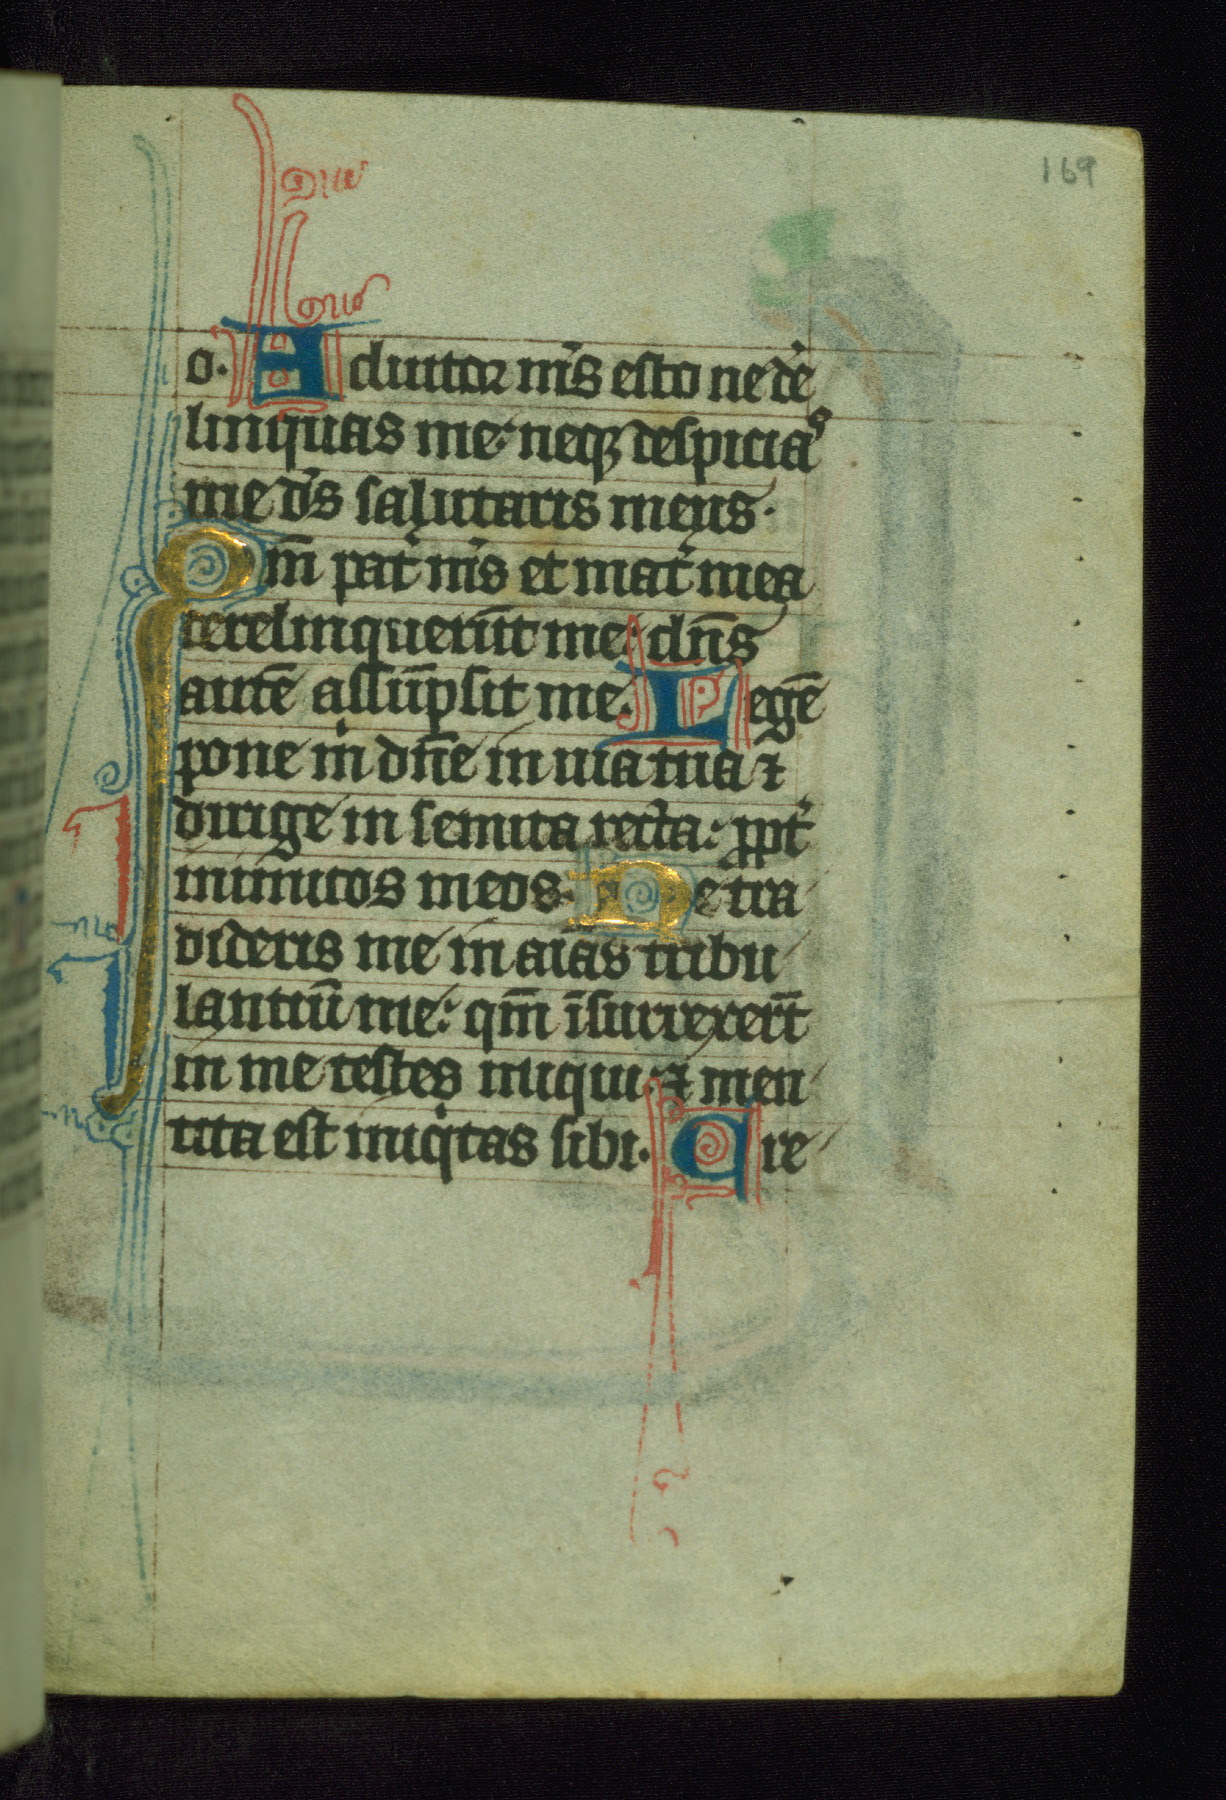 169
o. Adiutor m̅s esto ne de̅
linquas me: neq3 despicia⁹
me d̅s salutaris meus.
Qm̅ pat̅ m̅s et mat̅ mea
derelinqueru̅t me: dn̅s
aute̅ assu̅psit me. Lege̅
pone m̍ dn̅e in uia tua ⁊
dirige in semita recta: ꝓpt̅
inimicos meos. Ne tra
dideris me in ai̅as tribu
lantiu̅ me: qm̅ i̅surrexer̅t
in me testes iniqui. ⁊ men
tita est iniq̍tas sibi. Cre